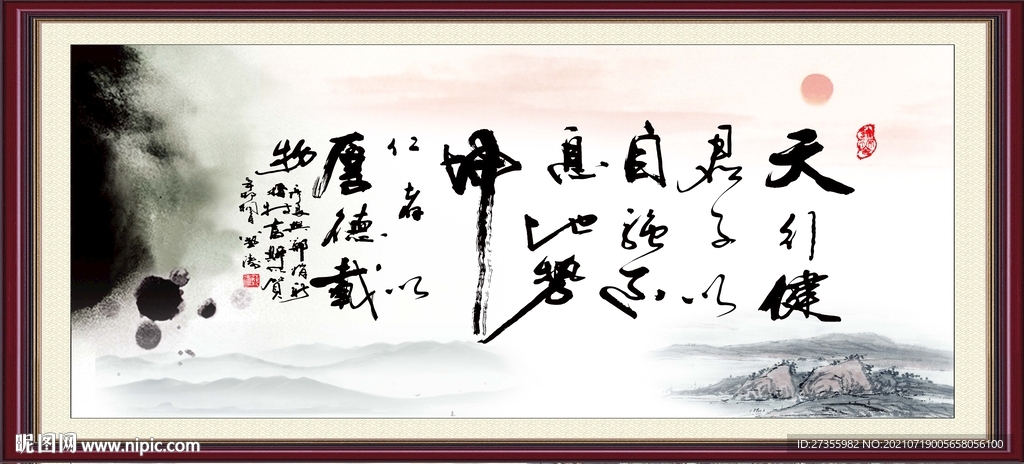 天行健
君子以
自强不
息地势
坤
仁者以
厚德载
物
昵图网 www.nipic.com
ID:27355982 NO:20210719005658056100